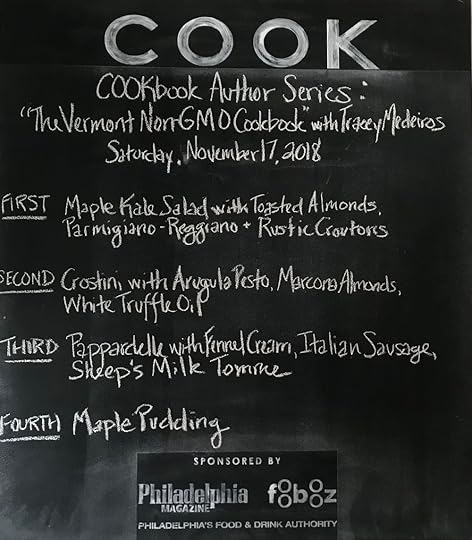 COOK
COOKbook Author Series:
"The Vermont Non-GMO Cookbook" with Tracey Medeiros
Saturday, November 17, 2018
FIRST Maple Kale Salad with Toasted Almonds,
Parmigiano-Reggiano + Rustic Croutons
SECOND Crostini with Arugula Pesto, Marcona Almonds,
White Truffle Oil
THIRD Pappardelle with Fennel Cream, Italian Sausage,
Sheep's Milk Tomme
FOURTH Maple Pudding
SPONSORED BY
Philadelphia foobooz
MAGAZINE
PHILADELPHIA'S FOOD & DRINK AUTHORITY